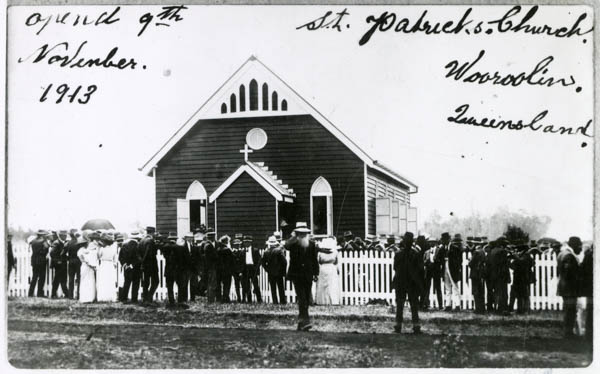 opend 9th
Novenber.
1913
St. Patrick.s. Church.
Wooroolin.
Queensland.